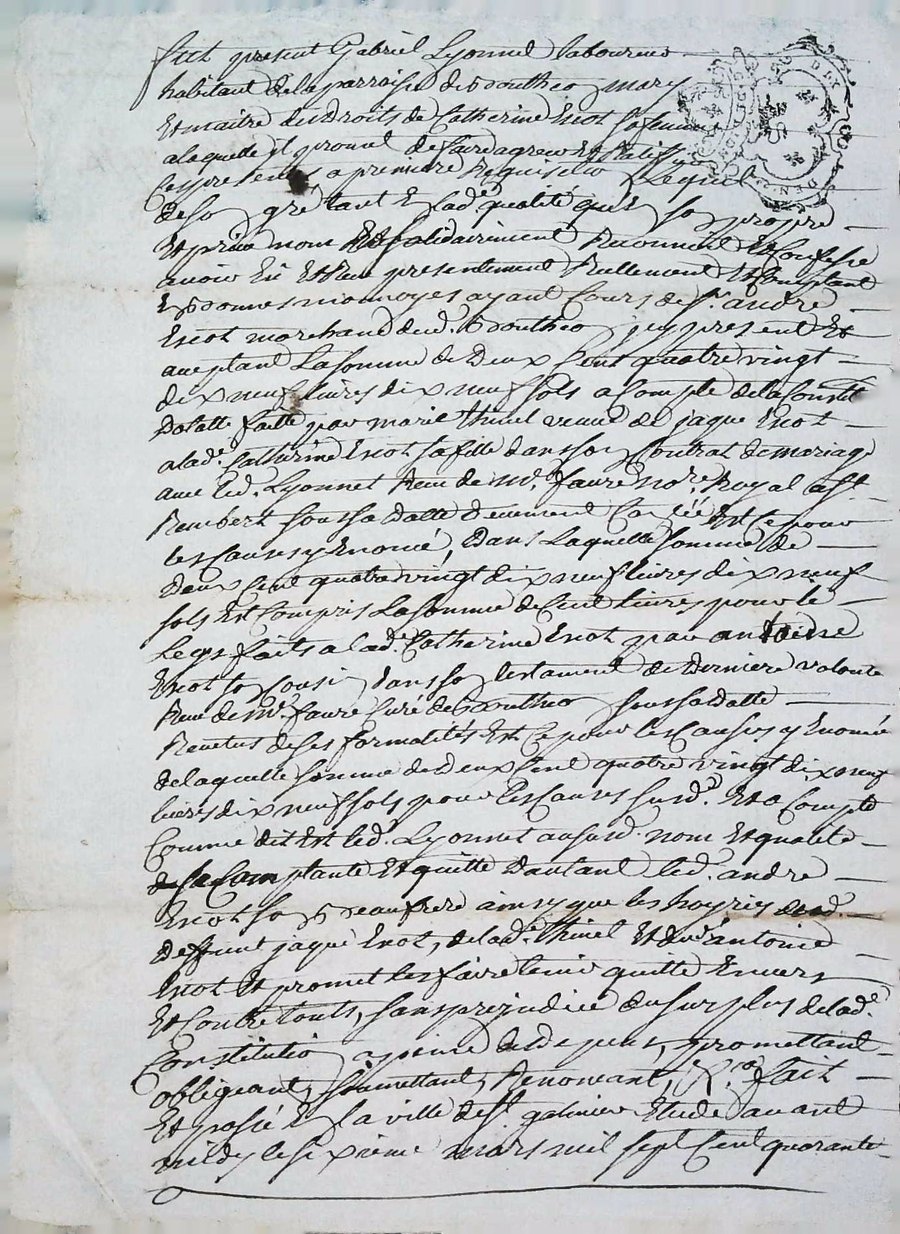 fut present Gabriel Lyonnet laboureur
habitant de la parroisse de Boutheo mary
Et maitre des Droits de Catherine Escot sa femme
a laquelle il promet de faire agreer Et Ratiff
Ces presentes a premiere Requisition Lequel
de son gré tant En lad.e qualité qu'E son propre
Et privé nom Et solidairement Reconneut Et Confesse
avoir Eu Et Receu presentement Reellement Et Comptant
En bonnes monnoyes ayant Cours de Sr. andré
Escot marchand dud. Boutheo, icy present Et
aceptant La somme de Deux Cent quatre vingt
dix neuf livres dix neuf sols a Compte de la Constit
Dotalle faitte par marie thinet veuve de jaque Escot
a lad.e Catherine Escot sa fille dans son Contrat de mariage
avec led. Lyonnet Receu de M.r faure No.re Royal a St.
Rambert sous sa Datte Deuement Con.lée Et Ce pour
les Causes y Enoncé, Dans Laquelle somme de
Deux Cent quatre vingt dix neuf livres dix neuf
sols Est Compris La somme de Cent livres pour le
Legs faits a lad.e Catherine Escot par antoine
Escot son Cousin Dans son testament de Derniere volonté
Receu de M.r faure Curé de Boutheo sous sa Datte
Revetus de ses formalités Et Ce pour les Causes y Enoncé
de laquelle somme de Deux Cent quatre vingt dix neuf
livres dix neuf sols pour les Causes susd.s Et a Compte
Comme dit Est led. Lyonnet ausud. nom Et qualité
se Contante Et quitte Dautant led. andré
Escot son Beaufrere ainsy que les hoyries dud.
Deffunt jaque Escot, de lad.e thinet Et dud. antoine
Escot Et promet les faire tenir quitte Envers
Et Contre touts, sans prejudice du surplus de lad.e
Constitution a peine de Depens, promettant
obligeant, soumettant, Renoncant, &.ra fait
Et passé En la ville de St. galmier Etude avant
midy le sixieme mars mil sept Cent quarante